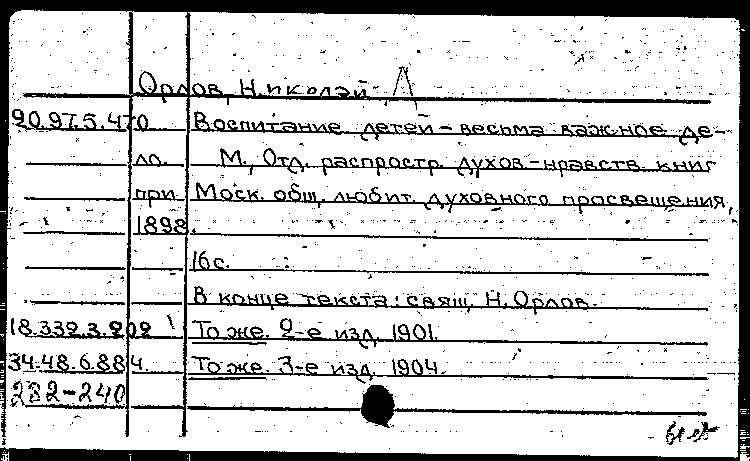 Орлов, Николай
20.97.5.470 Воспитание детей - весьма важное де-
ло. М., Отд. распростр. духов-нравств. книг
при Моск. общ. любит. духовного просвещения,
1898.
16с.
В конце текста: свящ. Н. Орлов.
18.332.3.202 То же. 2-е изд. 1901.
34.48.6.884. То же. 3-е изд. 1904.
282-240